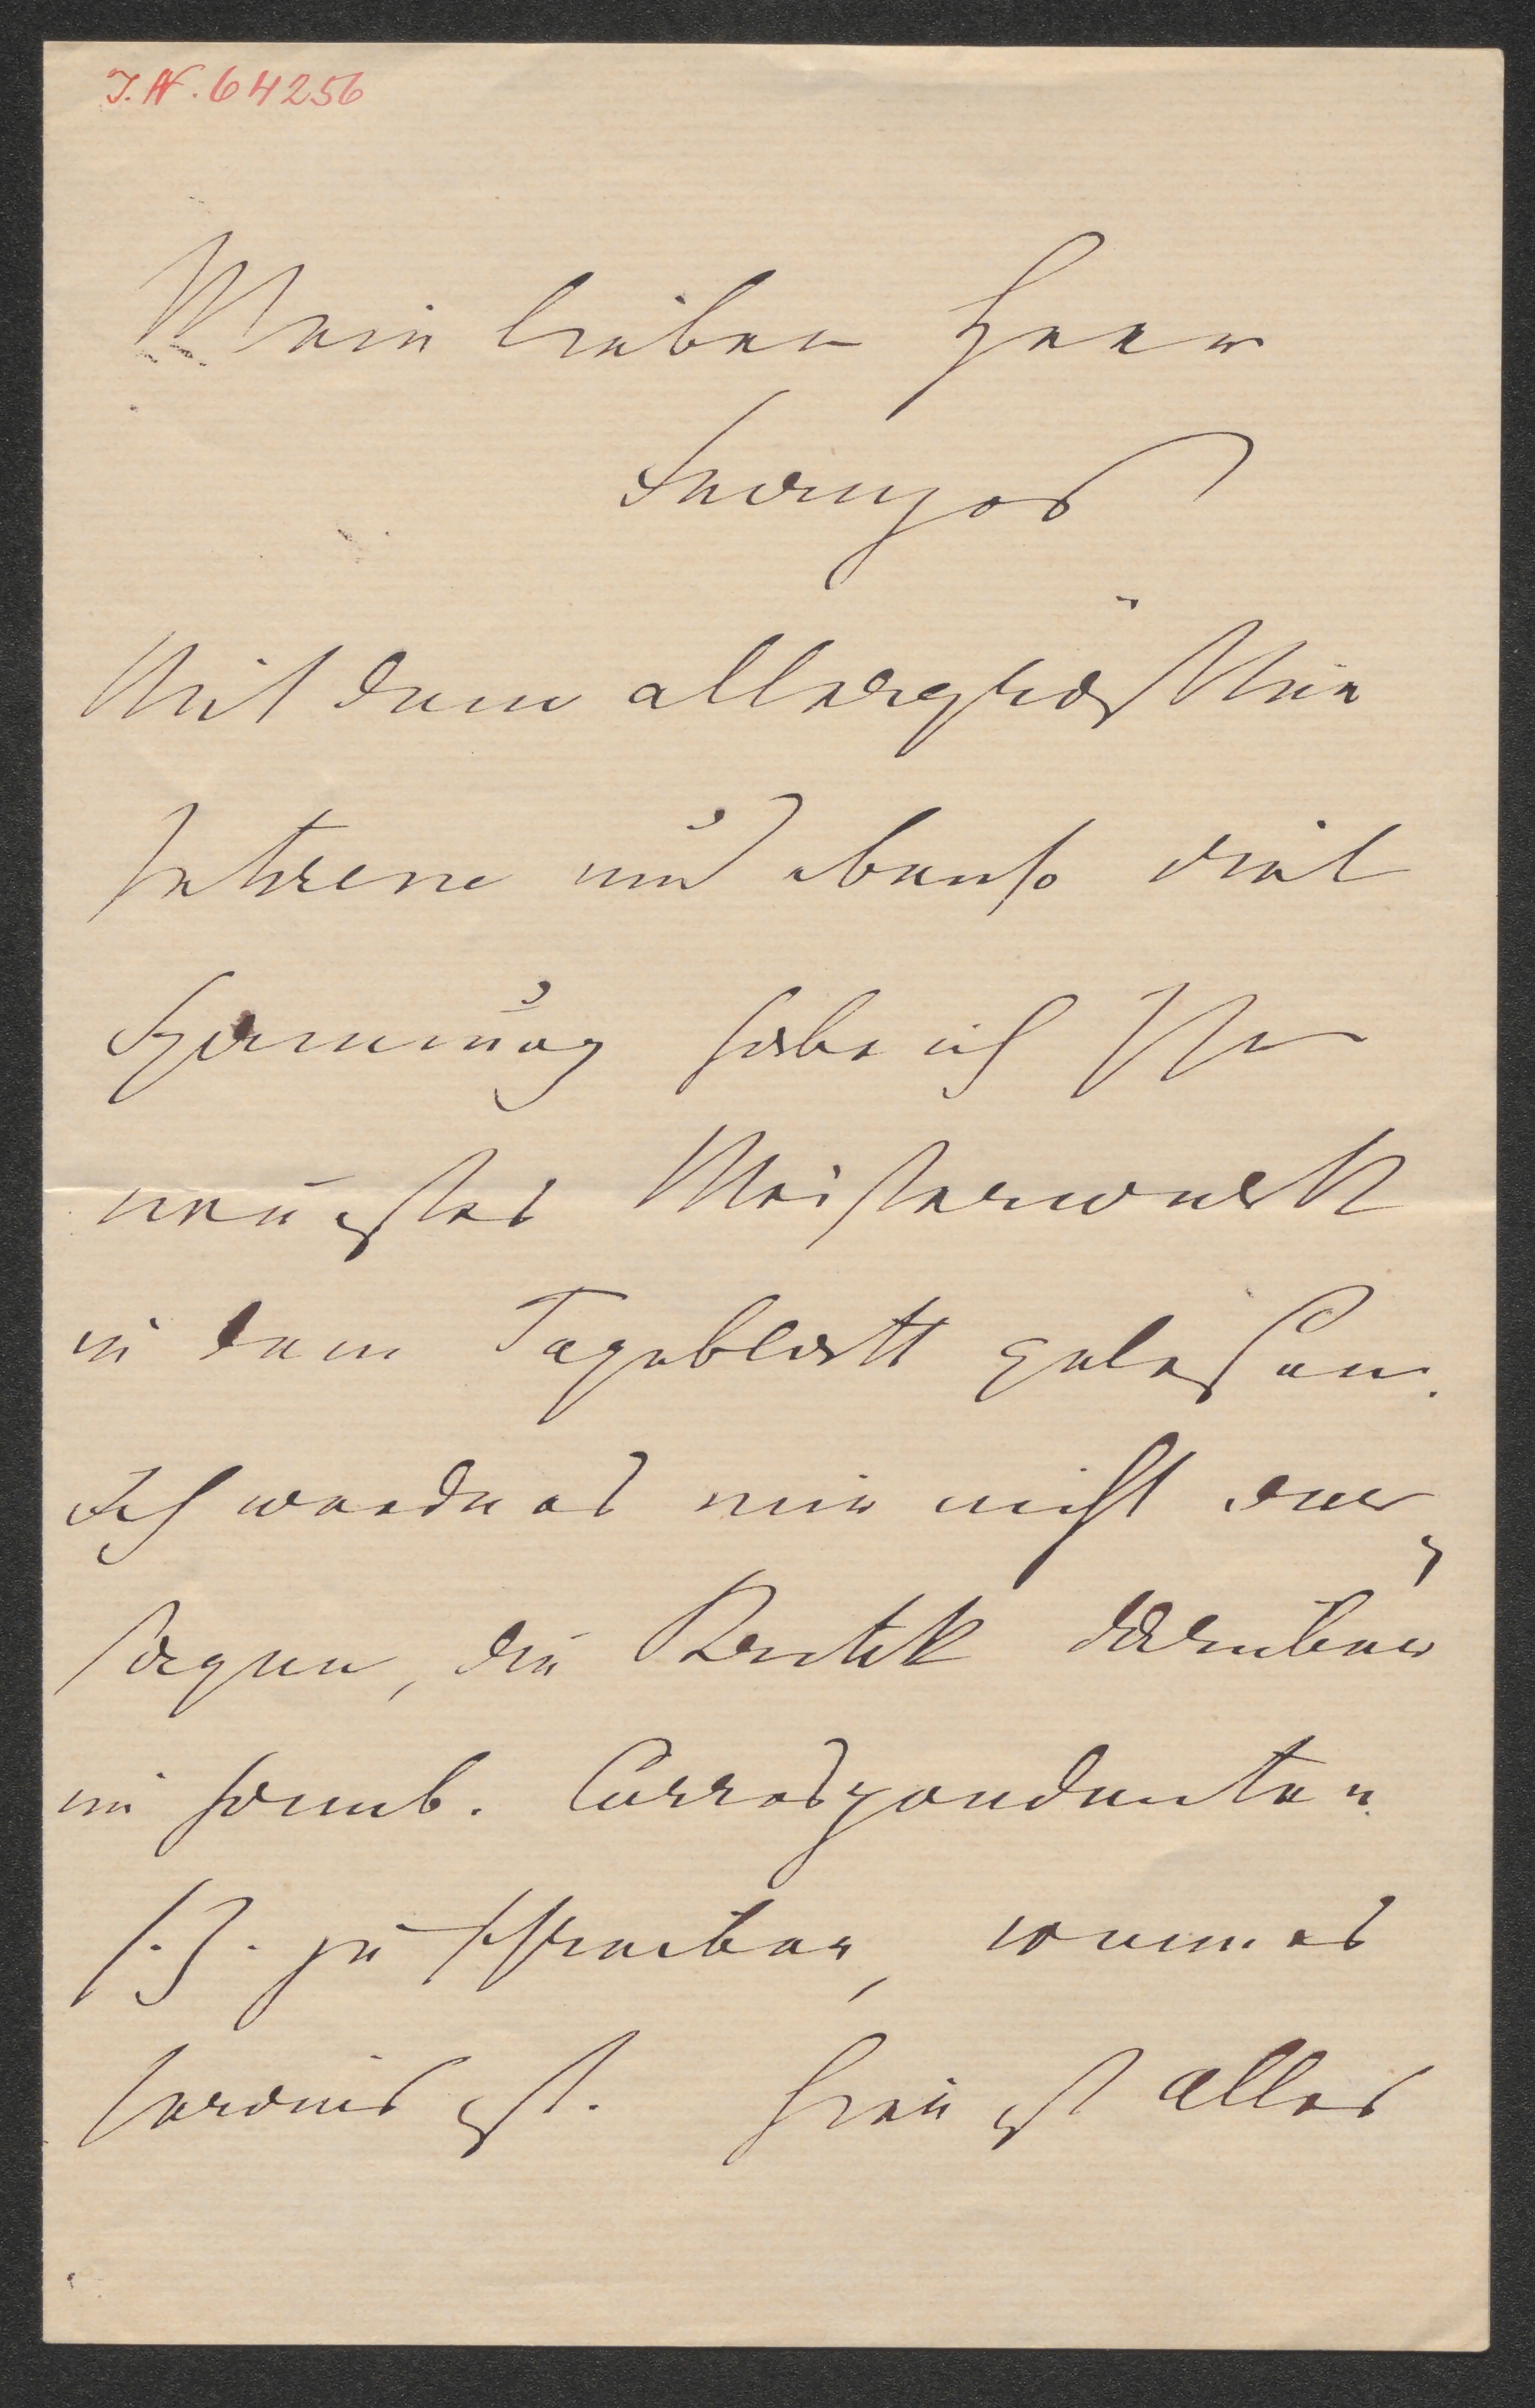 J.N. 64256
Mein lieber Herr
Franzos
Mit dem allergrößten
Intresse und ebenso viel
Spannung habe ich Ihr
neustes Meisterwerk
in dem Tageblatt gelesen.
Ich werde es mir nicht ver-
sagen, die Kritik darüber
im Hamb. Correspondenten
s. Z. zu schreiben, wenn es
heraus ist. Hier ist alles